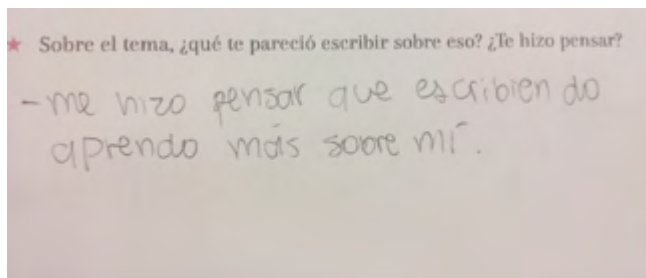 ★ Sobre el tema, ¿qué te pareció escribir sobre eso? ¿Te hizo pensar?
- me hizo pensar que escribiendo
aprendo más sobre mí.